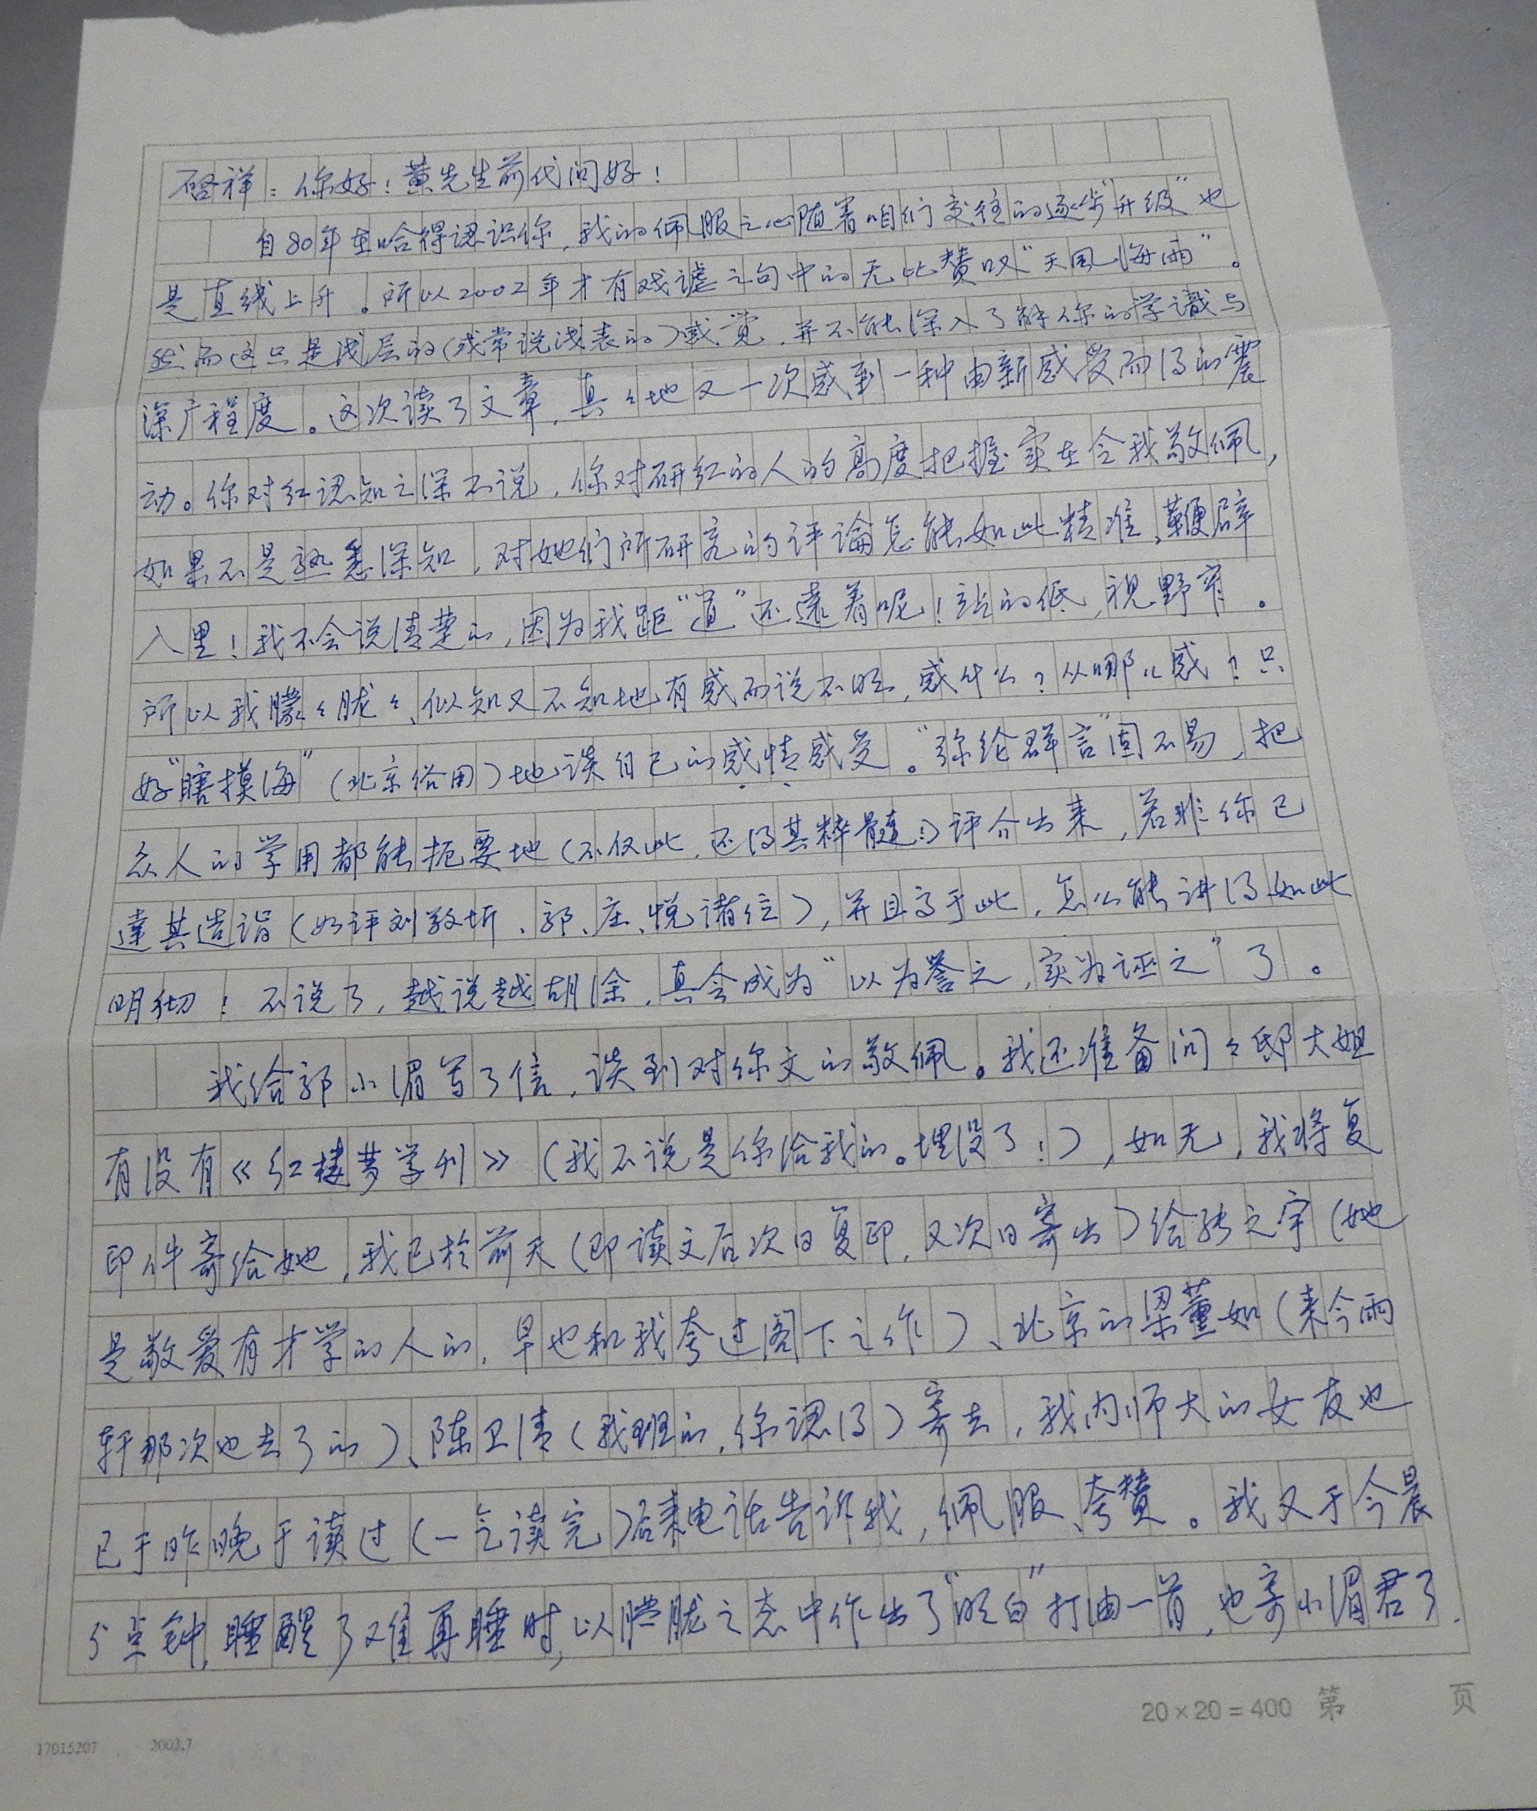 启祥：你好！黄先生前代问好！
自80年至哈得认识你，我的佩服之心随着咱们交往的逐步“升级”也
是直线上升。所以2002年才有戏谑之句中的无比赞叹“天风海雨”。
然而这只是浅层的（或常说浅表的）感觉，并不能深入了解你的学识与
深广程度。这次读了文章，真々地又一次感到一种由新感受而得的震
动。你对红认知之深不说，你对研红的人的高度把握实在令我敬佩，
如果不是熟悉深知，对她们所研究的评论怎能如此精准、鞭辟
入里！我不会说清楚的，因为我距“道”还远着呢！站的低，视野窄。
所以我朦々胧々、似知又不知地有感而说不明，感什么？从哪儿感？只
好“瞎摸海”（北京俗用）地谈自己的感情感受。“弥纶群言”固不易，把
众人的学用都能扼要地（不仅此，还得其粹髓！）评介出来，若非你已
达其造诣（如评刘敬圻、郭、庄、悦诸位），并且高于此，怎么能讲得如此
明彻！不说了，越说越胡涂，真会成为“以为誉之，实为诬之”了。
我给郭小湄写了信，谈到对你文的敬佩。我还准备问々邸大姐
有没有《红楼梦学刊》（我不说是你给我的。埋没了！），如无，我将复
印件寄给她，我已於前天（即读文后次日复印，又次日寄出）给张之宇（她
是敬爱有才学的人的，早也和我夸过阁下之作）、北京的梁董如（来今雨
轩那次也去了的）、陈卫清（我班的，你认得）寄去，我内师大的女友也
已于昨晚于读过（一气读完）后来电话告诉我，佩服、夸赞。我又于今晨
5点钟，睡醒了难再睡时，以朦胧之态中作出了“明白”打油一首，也寄小湄君了.
20×20＝400 第 页
17015207 2003.7